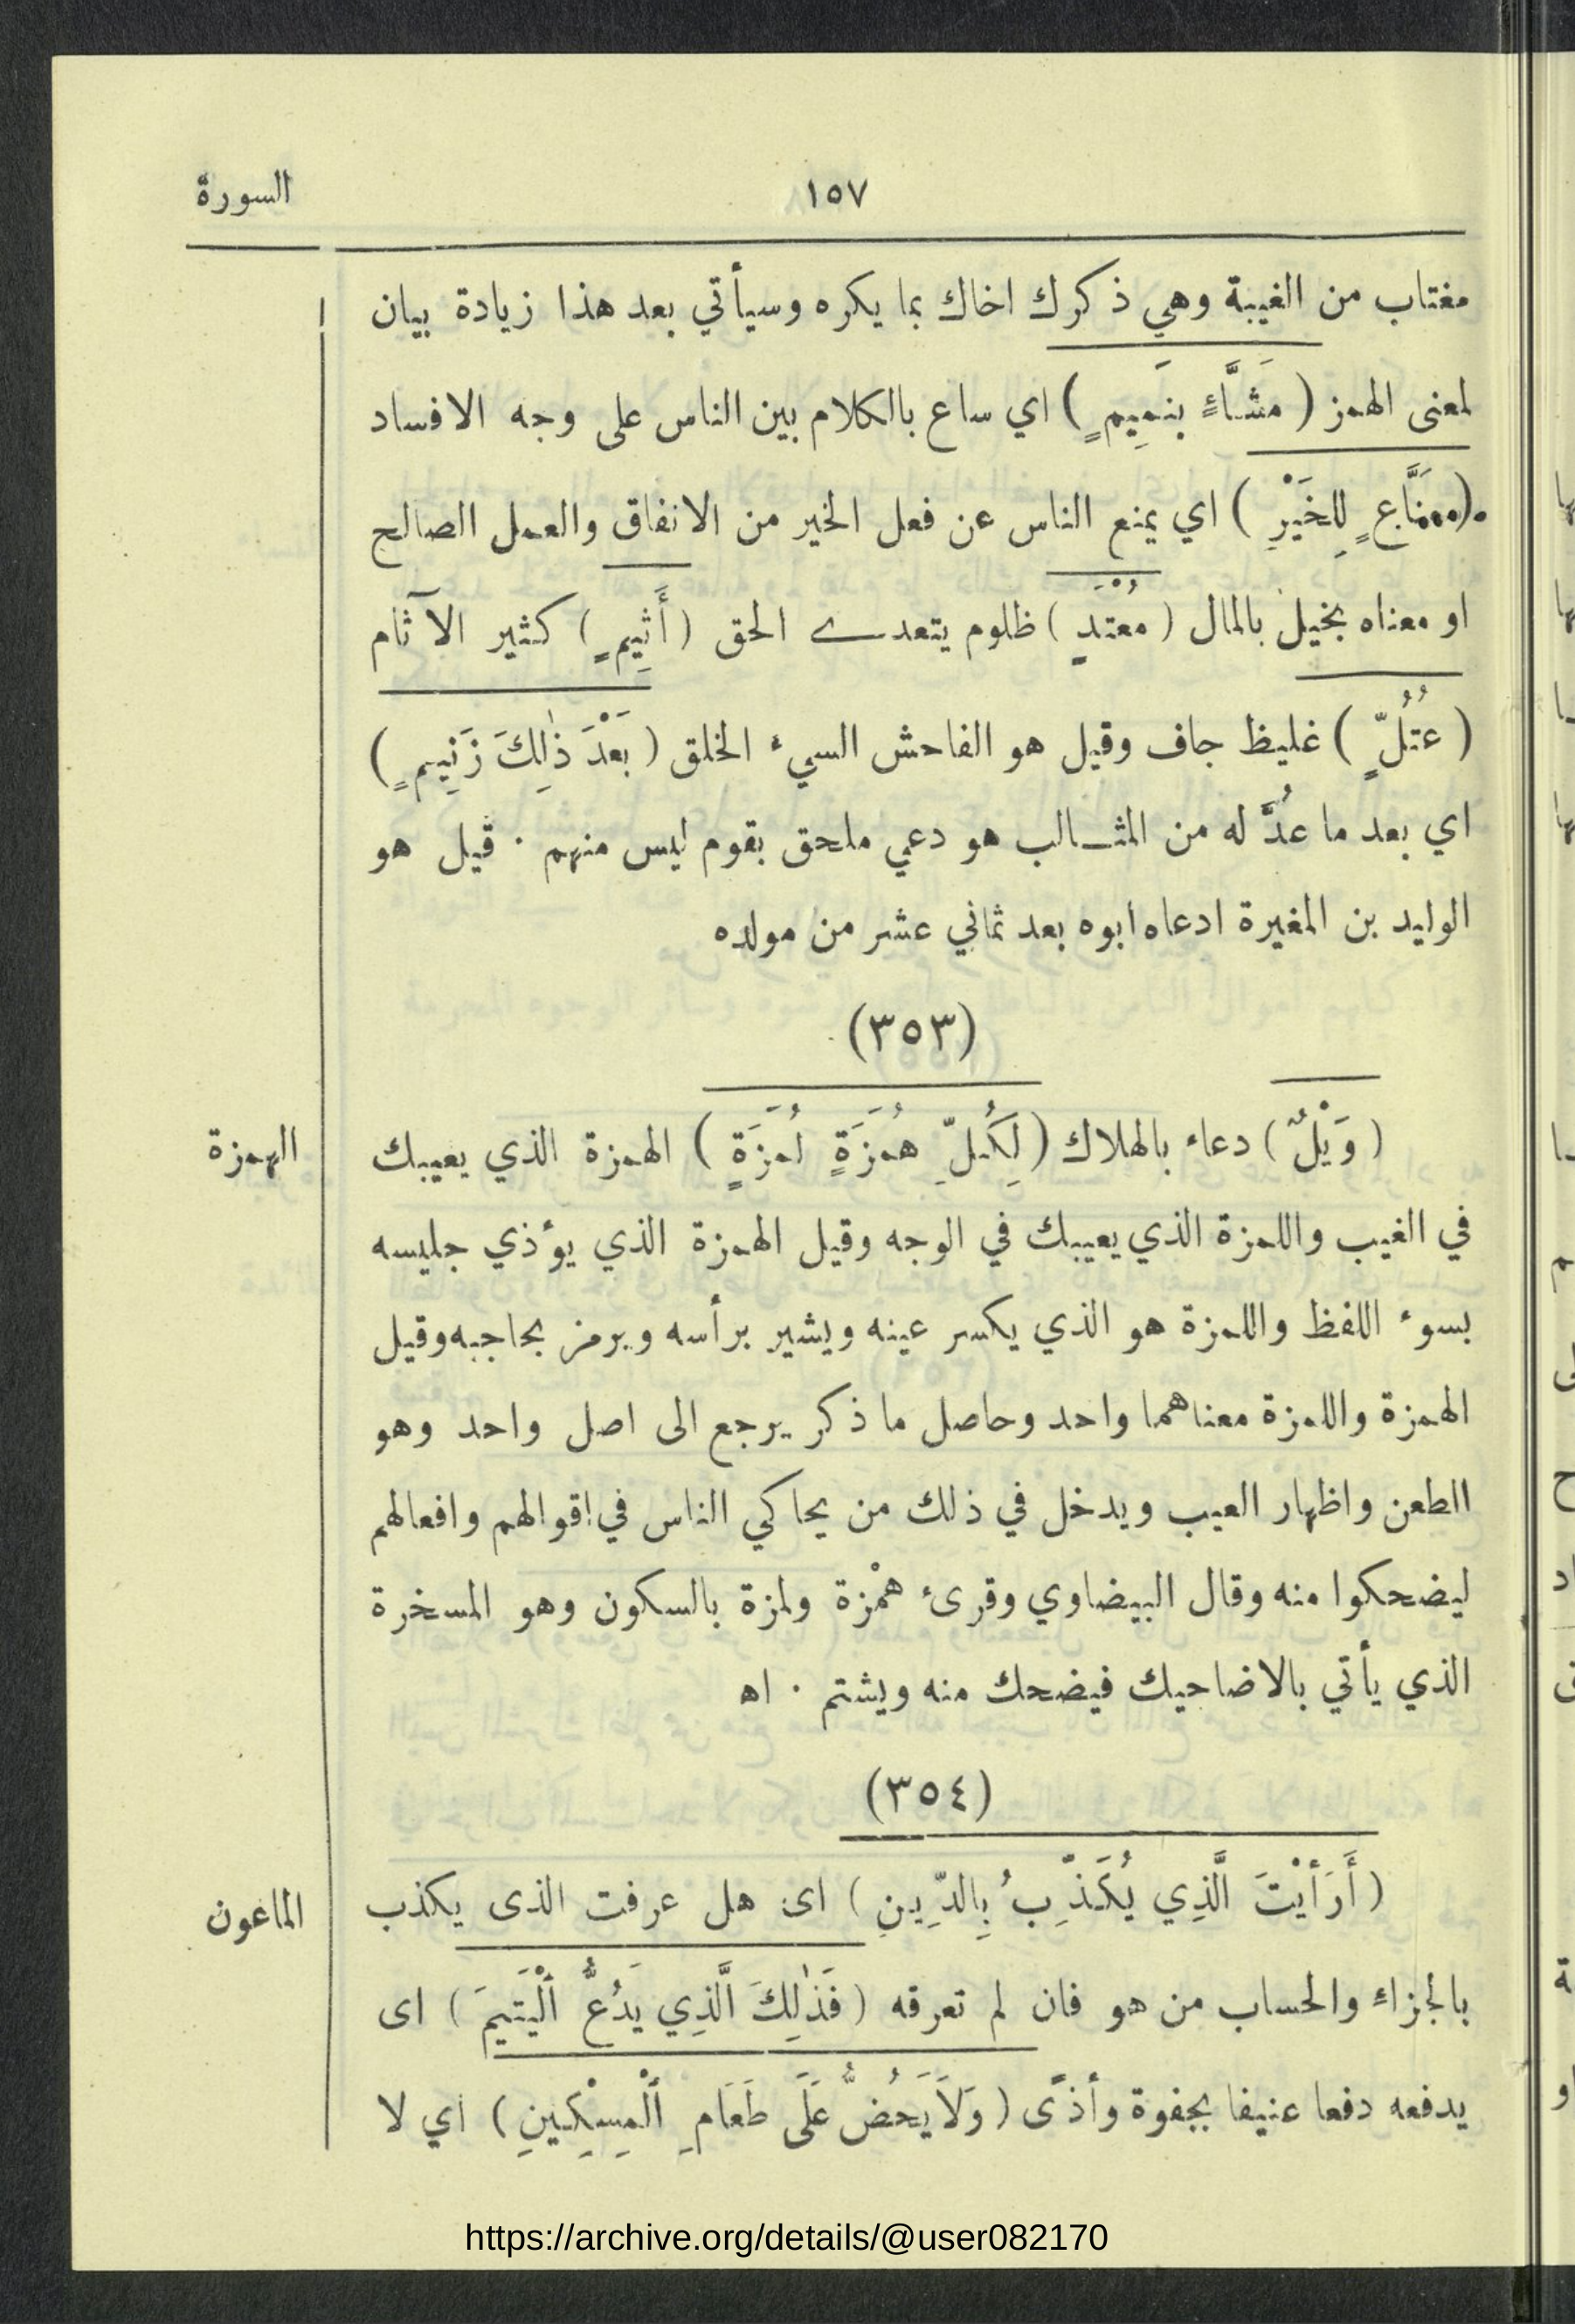 ١٥٧
السورة
مغتاب من الغيبة وهي ذكرك اخاك بما يكره وسيأتي بعد هذا زيادة بيان
لمعنى الهمز ( مَشَّاءٍ بِنَمِيمٍ ) اي ساع بالكلام بين الناس على وجه الافساد
(مَنَّاعٍ لِلخَيْرِ ) اي يمنع الناس عن فعل الخير من الانفاق والعمل الصالح
او معناه بخيل بالمال ( مُعْتَدٍ ) ظلوم يتعدى الحق ( أَثِيمٍ ) كثير الآثام
( عُتُلٍّ ) غليظ جاف وقيل هو الفاحش السيء الخلق ( بَعْدَ ذٰلِكَ زَنِيمٍ )
اي بعد ما عُدَّ له من المثالب هو دعي ملحق بقوم ليس منهم ٠ قيل هو
الوليد بن المغيرة ادعاه ابوه بعد ثماني عشر من مولده
(٣٥٣)
( وَيْلٌ ) دعاء بالهلاك ( لِكُلِّ هُمَزَةٍ لُمَزَةٍ ) الهمزة الذي يعيبك
الهمزة
في الغيب واللمزة الذي يعيبك في الوجه وقيل الهمزة الذي يؤذي جليسه
بسوء اللفظ واللمزة هو الذي يكسر عينه ويشير برأسه ويرمز بحاجبه وقيل
الهمزة واللمزة معناهما واحد وحاصل ما ذكر يرجع الى اصل واحد وهو
الطعن واظهار العيب ويدخل في ذلك من يحاكي الناس في اقوالهم وافعالهم
ليضحكوا منه وقال البيضاوي وقرىء همْزة ولمزة بالسكون وهو المسخرة
الذي يأتي بالاضاحيك فيضحك منه ويشتم ٠ اه
(٣٥٤)
( أَرَأَيْتَ الَّذِي يُكَذِّبُ بِالدِّينِ ) اى هل عرفت الذى يكذب
الماعون
بالجزاء والحساب من هو فان لم تعرفه ( فَذٰلِكَ الَّذِي يَدُعُّ الْيَتِيمَ ) اى
يدفعه دفعا عنيفا بجفوة وأذًى ( وَلاَ يَحُضُّ عَلَى طَعَامِ الْمِسْكِينِ ) اي لا
https://archive.org/details/@user082170